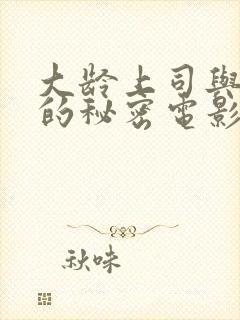 大龄上司與
的秘密电影
秋味